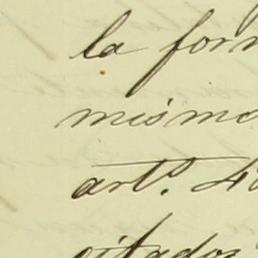 la form
mismo
artº. 4
citados